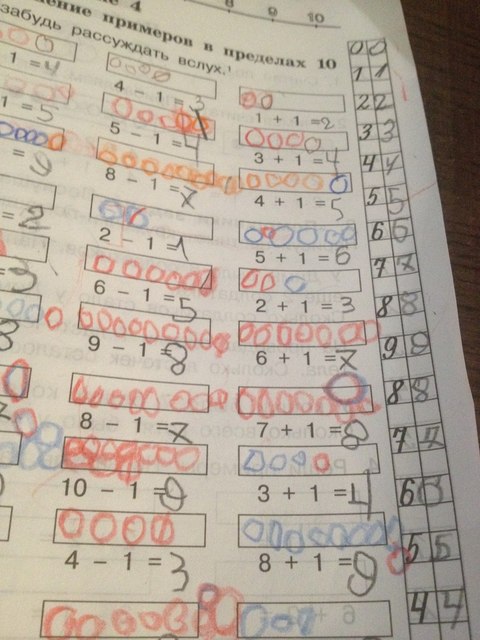 4
8 9 10
ение примеров в пределах 10
забудь рассуждать вслух.)
1 = 4
4 - 1 = 3
1 + 1 = 2
1 = 5
5 - 1 = 4
3 + 1 = 4
= 9
8 - 1 = 7
4 + 1 = 5
= 2
2 - 1 = 1
5 + 1 = 6
= 3
6 - 1 = 5
2 + 1 = 3
8
9 - 1 = 8
6 + 1 = 7
8 - 1 = 7
7 + 1 = 8
10 - 1 = 9
3 + 1 = 4
4 - 1 = 3
8 + 1 = 9
0 0
1 1
2 2
3 3
4 4
5 5
6 6
7 7
8 8
9 9
8 8
7 7
6 6
5 5
4 4